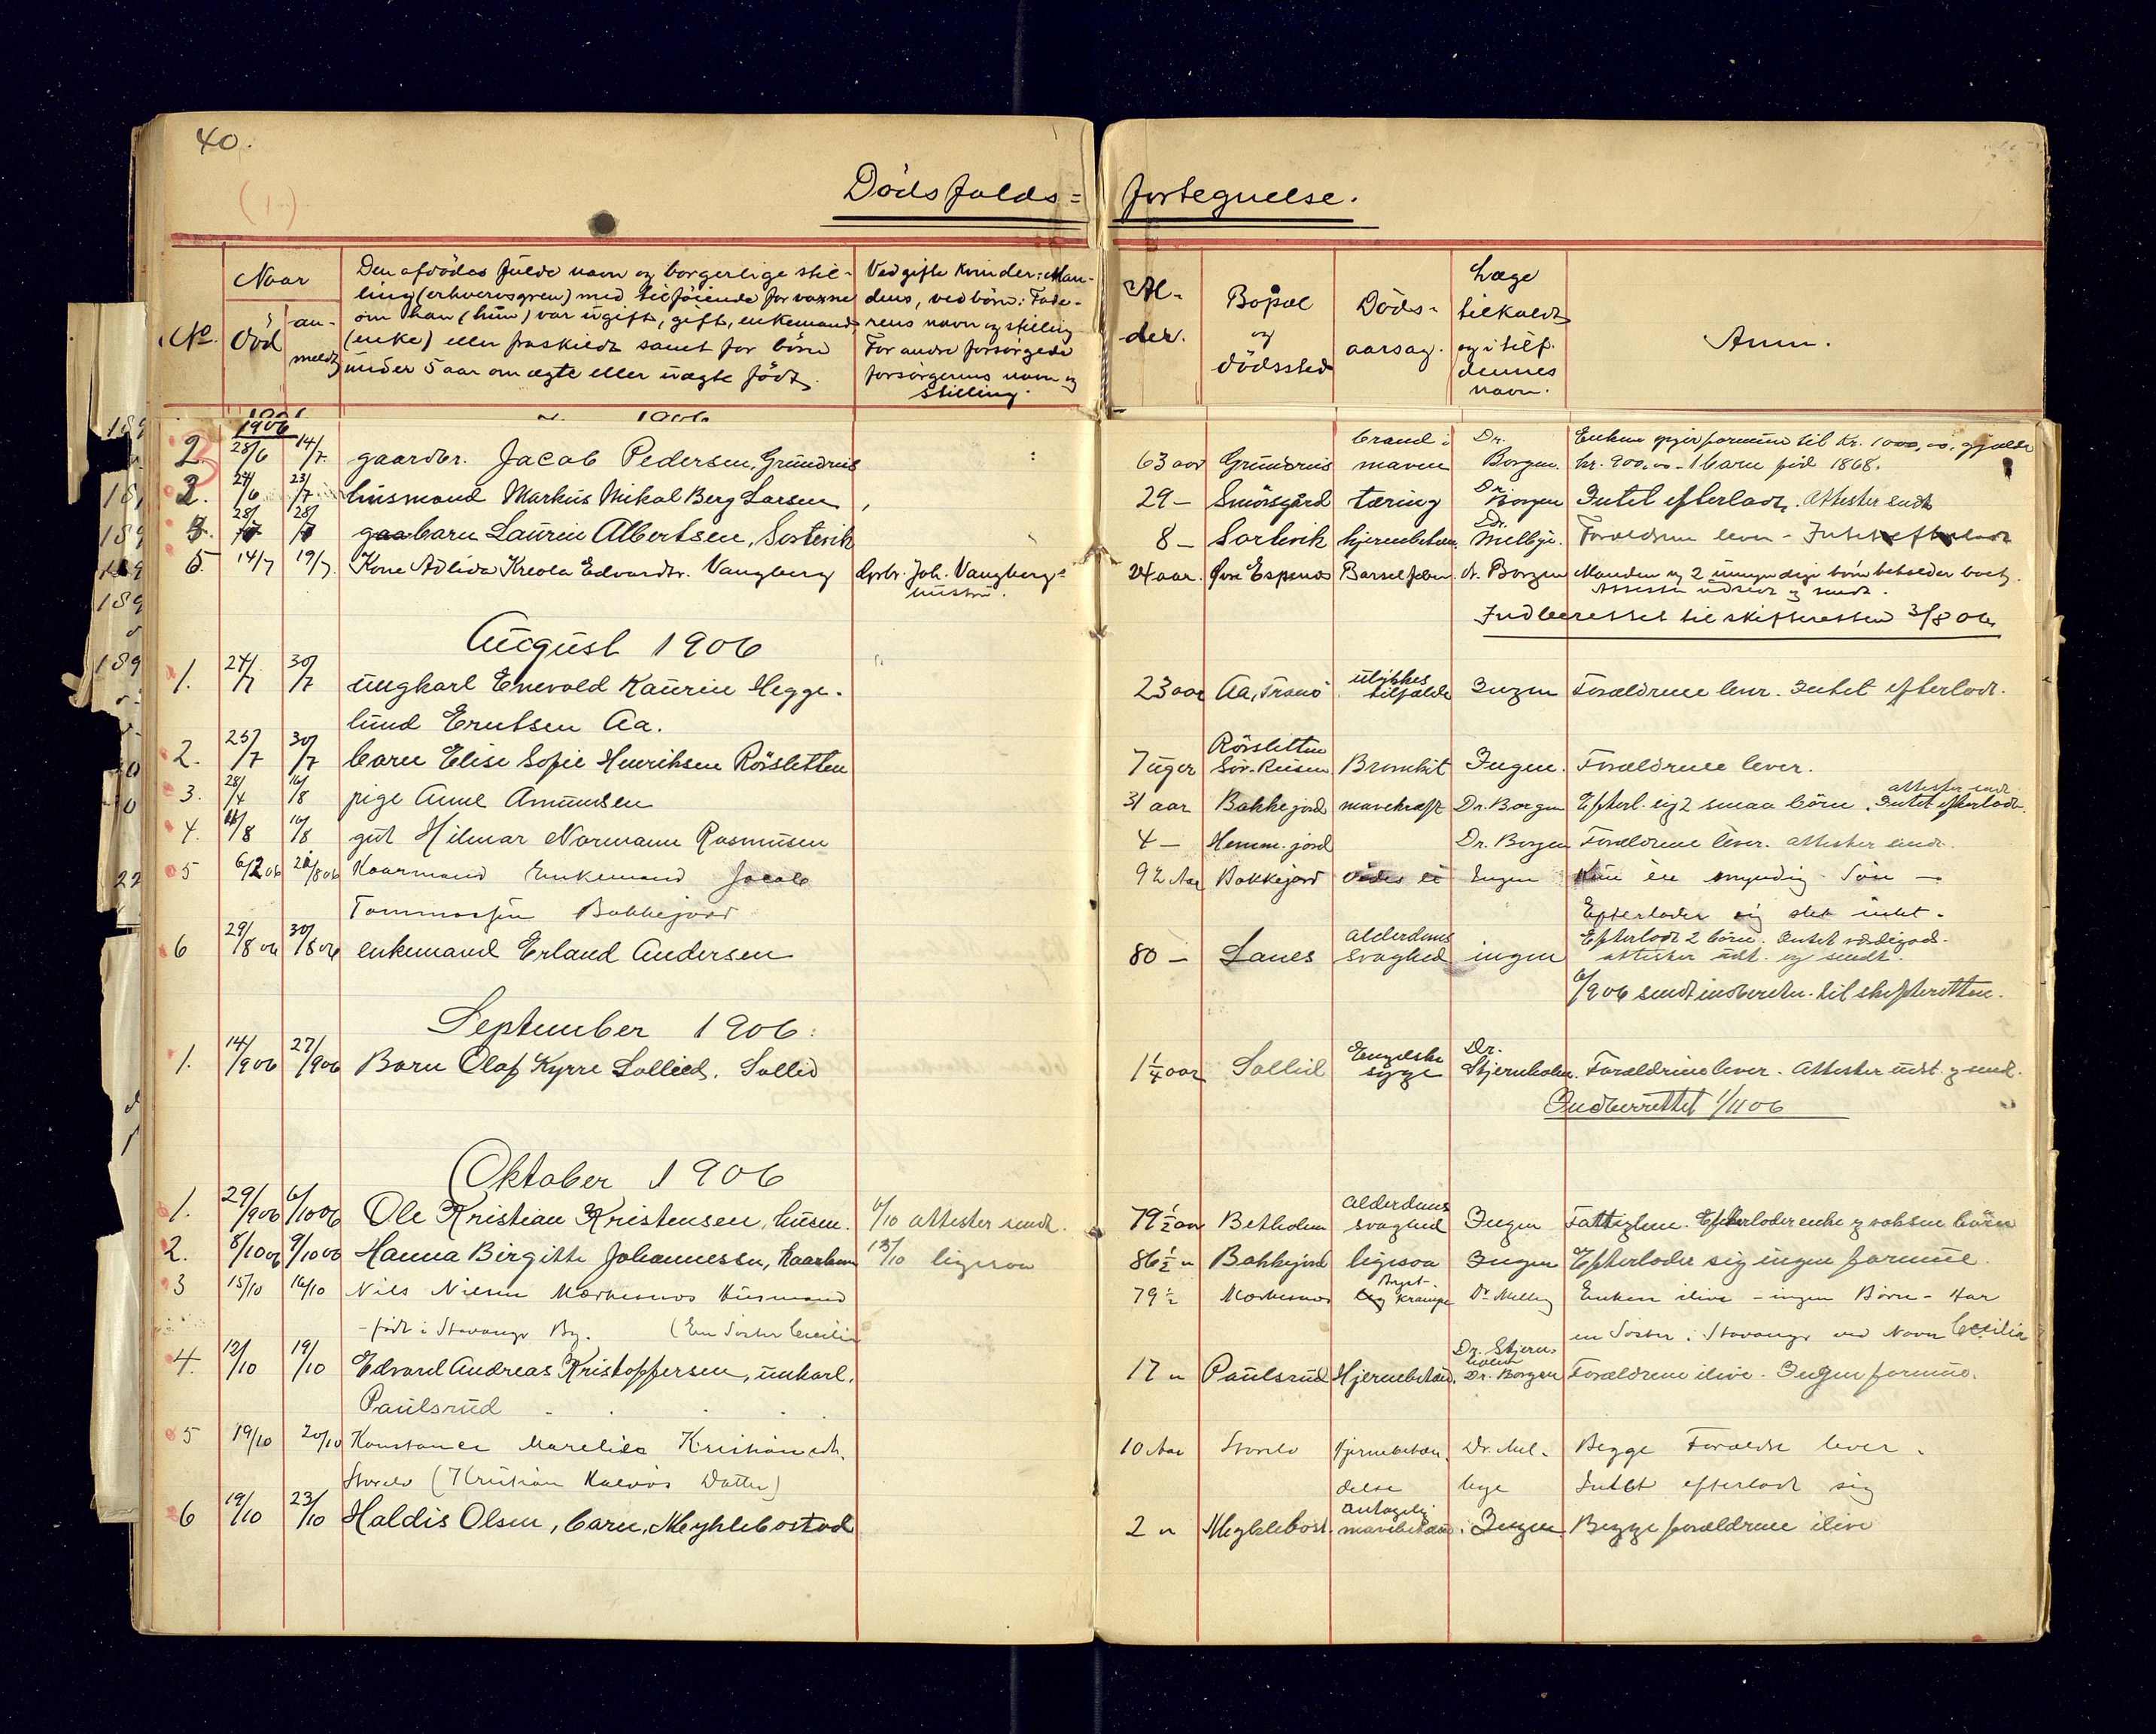 40.
Dödsfalds= fortegnelse.
No.
Naar
död
an-
meldt
Den afdödes fulde navn og borgerlige stil-
ling (erhvervsgren) med tilföiende for voxne
om han (hun) var ugift, gift, enkemand
(enke) eller fraskildt samt for börn
under 5 aar om ægte eller uægte födt.
Ved gifte kvinder: Man-
dens, ved börn: Fade-
rens navn og stilling
For andre forsörgede
forsörgerens navn og
stilling.
Al-
der.
Bopæl
og
dödssted
Döds-
aarsag.
Læge
tilkaldt
og i tilf.
dennes
navn.
Anm.
1906
2 28/6 14/7 gaardbr. Jacob Pedersen, Grundnes 63 aar Grundnes brand i maven Dr. Borgen. Enken opgir formue til Kr. 1000,00, gjæld
kr. 900,00 - 1 barn föd 1868.
2. 27/6 23/7 husmand Markus Mikal Berg Larsen 29 - Smörsgård tæring Dr. Borgen Intet efterladt. Attester sendt
barn Laurin Albertsen, 8 - hjernebetæn. Dr. Melbye. Forældrene lever - Intet efterladt
5. 14/7 19/7 Kone Adlida Kreola Edvardsr. Vangberg Grbr. Joh. Vangbergs hustru. 24 aar. Övre Espenes Barselfeber Dr. Borgen Manden og 2 umyndige börn beholder boet.
Attester udstedt og sendt.
Indberettet til skifteretten 3/8 06
August 1906
1. 24/7 30/7 ungkarl Enevold Kaurin Hegge- 23 aar Aa, Tranö ulykkes tilfælde Ingen Forældrene lever. Intet efterladt.
lund Erntsen Aa.
2. 25/7 30/7 barn Elise Sofie Henriksen Rörsletten 7 uger Rörsletten Sör-Reisen Bronkit Ingen. Forældrene lever.
3. 28/4 16/8 pige Anne Amundsen 31 aar Bakkejord mavekræft Dr. Borgen Efterl. sig 2 smaa börn. Intet efterladt. attester sendt
4. 16/8 gut Hilmar Normann Rasmussen 4 - Hemm. jord Dr. Borgen Forældrene lever. attester sendt.
5 6/2 06 /8 06 Kaarmand Enkemand Jacob 92 Aar Bakkejord Ingen en myndig Sön -
Tommassen Bakkejord Efterlader sig slet intet.
6 29/8 06 30/8 06 enkemand Erland Andersen 80 - Lanes alderdoms svaghed ingen Efterladt 2 börn. Intet
attester udst. og sendt.
6/9 06 sendt indberetn. til skifteretten.
September 1906:
1. 14/9 06 27/9 06 Barn Olaf Kyrre Sollied. Sollid 1 1/4 aar Sollid Engelske syge Dr. Stjernholm. Forældrene lever. Attester udst. og send.
Indberettet 1/11 06
Oktober 1906
1. 29/9 06 6/10 06 Ole Kristian Kristensen, husm. 6/10 attester sendt. 79 1/2 aar Betholm alderdoms svaghed Ingen Fattiglem. Efterlader enke og voksne börn
2. 8/10 06 9/10 06 Hanna Birgitte Johannessen, Kaarkone 13/10 ligesaa 86 1/2 " Bakkejord ligesaa Ingen Efterlader sig ingen formue.
3 15/10 16/10 Nils Nilsen Mörkesnes Husmand 79 1/2 Mörkesnes Bryst- krampe Dr Melby Enken ilive - ingen Börn - Har
- födt i Stavanger By. (En Söster Cecilia en Söster i Stavanger ved Navn Cecilia
4. 12/10 19/10 Edvard Andreas Kristoffersen, unkarl, 17 " Paulsrud Hjernebetænd. Dr. Stjern- holm Dr. Borgen Forældrene ilive. Ingen formue.
Paulsrud
5 19/10 20/10 Konstance Marelisa Kristiansdt. 10 Aar Storelv Hjernebetæn- Dr. Mel- Begge Forældre lever.
Storelv (Kristian Datter) delse bye Intet efterladt sig
6 19/10 23/10 Haldis Olsen, barn, Meghlebostad 2 " Meghlebost. antagelig mavebetænd. Ingen Begge forældrene ilive